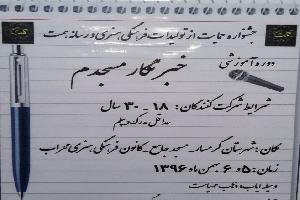 جشنواره حمایت از تولیدات فرهنگی هنری و رسانه همت
دوره آموزشی
خبرنگار مسجدم
شرایط شرکت کنندگان: ۱۸ - ۳۰ سال
حداقل مدرک دیپلم
مکان: شهرستان گرمسار - مسجد جامع - کانون فرهنگی هنری محراب
زمان: ۵ و ۶ بهمن ماه ۱۳۹۶
وسیله ایاب و ذهاب مهیاست